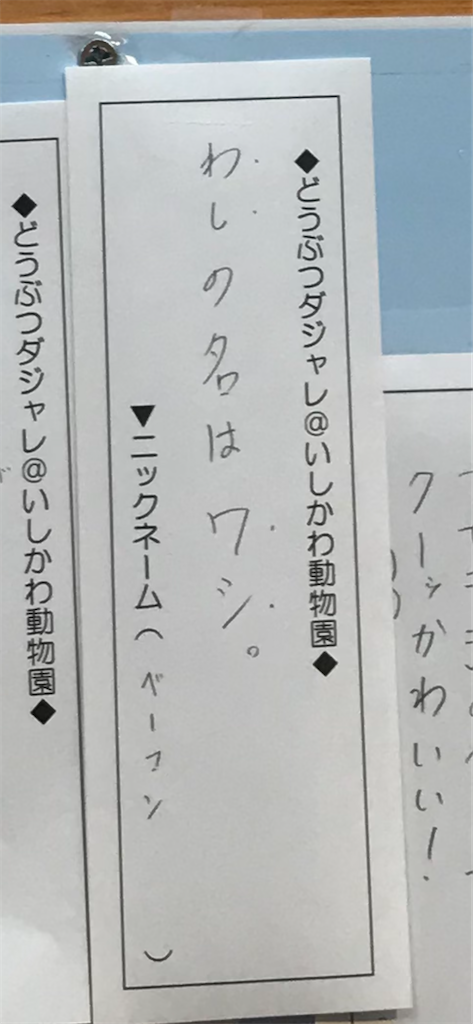 ◆どうぶつダジャレ@いしかわ動物園◆
わしの名はワシ。
▼ニックネーム(ベーコン)
クーッかわいい!
◆どうぶつダジャレ@いしかわ動物園◆